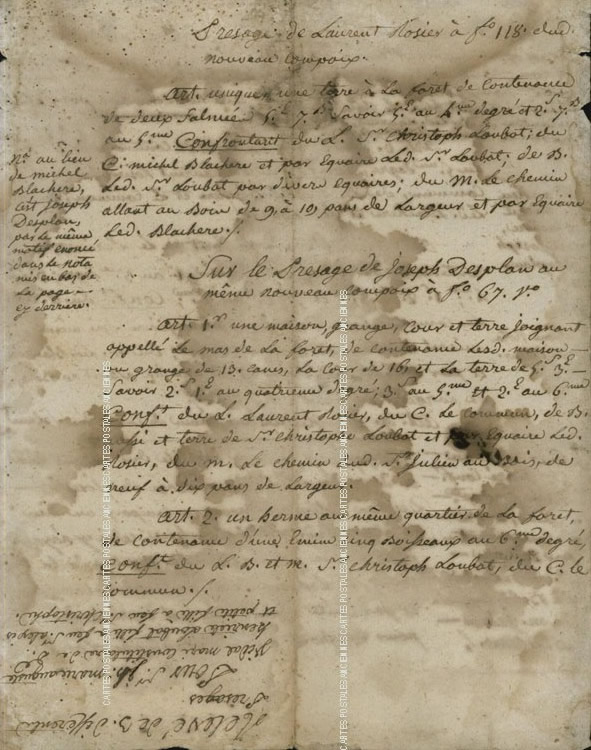 Presage de Laurent Rosier à f.o 118. dud.
nouveau Compoix.
Art. unique, une terre à la foret de Contenance
de deux Salmées 1.E 7.B Savoir 5.E au 4.e degré et 2.S 7.B
au 5.me Confrontant du L. Sr. Christoph Loubat; du
C. michel Blachere et par Equaire Led. Sr. Loubat; de B.
Led. Sr. Loubat par divers equaires; du M. Le chemin
allant au Bois de 9, à 10, pans de Largeur et par Equaire
Led. Blachere ./.
Na. au lieu
de michel
Blachere,
est Joseph
Desplan,
par le même
motif enoncé
dans le Nota
mis en bas de
La page
cy derriere.
Sur le Presage de Joseph Desplan au
même nouveau Compoix à f.o 67. vo
Art. 1.r une maison, grange, Cour et terre Joignant
appellé Le mas de La foret, de contenance Lesd. maison
ou grange de 13. canes, La Cour de 16, et La terre de 5.S 3.E
Savoir 2.S 1.E au quatrieme degré; 3.S au 5.me Et 2.E au 6.me
Conf.t du L. Laurent Rosier, du C. Le Commun, de B.
et terre de Sr. Christoph Loubat et par Equaire Led.
Rosier, du M. Le chemin dud. St. Julien au Bois, de
neuf à dix pans de Largeur.
Art. 2. un herme au même quartier de La foret,
de contenance d'une Emine cinq Boisseaux au 6.me degré,
Conf.t du L. B. et M. Sr. Christoph Loubat, du C. Le
Commun ./.
Relevé de 3. differents
Presages
Pour Sr. marie auguste
Vidal
henriette Loubat fille à feu Sr.
et petite fille à feu Sr. Christophe.
CARTES POSTALES ANCIENNES CARTES POSTALES ANCIENNES CARTES POSTALES ANCIENNES
CARTES POSTALES ANCIENNES CARTES POSTALES ANCIENNES CARTES POSTALES ANCIENNES